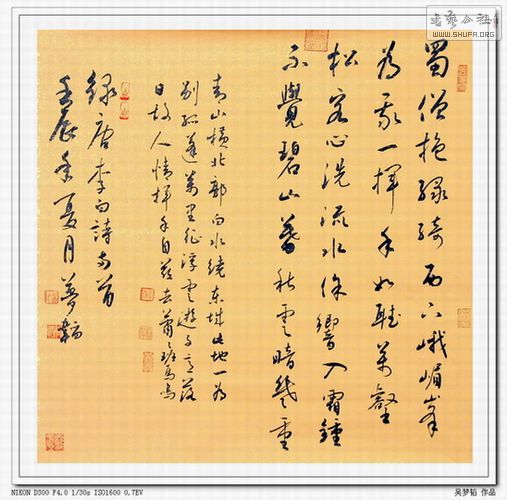 書藝公社
WWW.SHUFA.ORG
蜀僧抱綠綺西下峨嵋峯
為我一揮手如聽萬壑
松客心洗流水餘響入霜鐘
不覺碧山暮秋雲暗幾重
青山橫北郭白水繞東城此地一為
別孤蓬萬里征浮雲遊子意落
日故人情揮手自茲去蕭蕭班馬鳴
錄唐李白詩兩首
壬辰年夏月夢韜
NIKON D300 F4.0 1/30s ISO1600 0.7EV
吴梦韬 作品